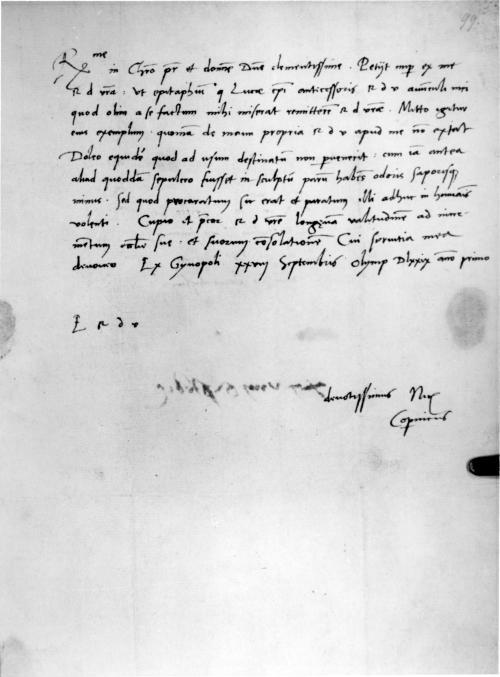 99.
R me in Chro pr et domne Dne clementissime. Petijt nup ex me
R d vra: Ut epitaphiu q Lucae epi antecessoris R d v avunculi mei
quod olim a se factum mihi miserat remitterem R d vrae. Mitto igitur
eius exemplum. quonia de manu propria R d v apud me no extat
Doleo equide quod ad usum destinatu non puenerit: cum ia antea
aliud quodda sepulcro fuisset in sculptu paru habes odoris saporisq
minus. Sed quod procuratum sic erat et paratum illi adhuc in humanis
volenti. Cupio et pcor R d vrae longeva valitudine ad incre-
mentum eccliae suae. et suorum cosolatione Cui servitia mea
devoveo Ex Gynopoli xxvij Septembris Olymp Dlxxix ano primo
E R d v
devotissimus Nic
Copnicus